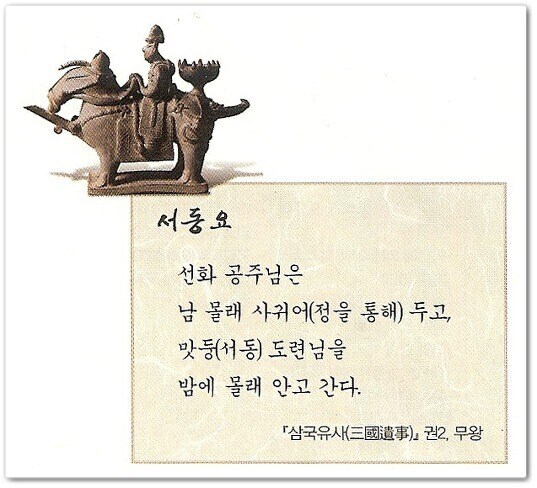 서동요
선화 공주님은
남 몰래 사귀어(정을 통해) 두고,
맛둥(서동) 도련님을
밤에 몰래 안고 간다.
『삼국유사(三國遺事)』 권2, 무왕